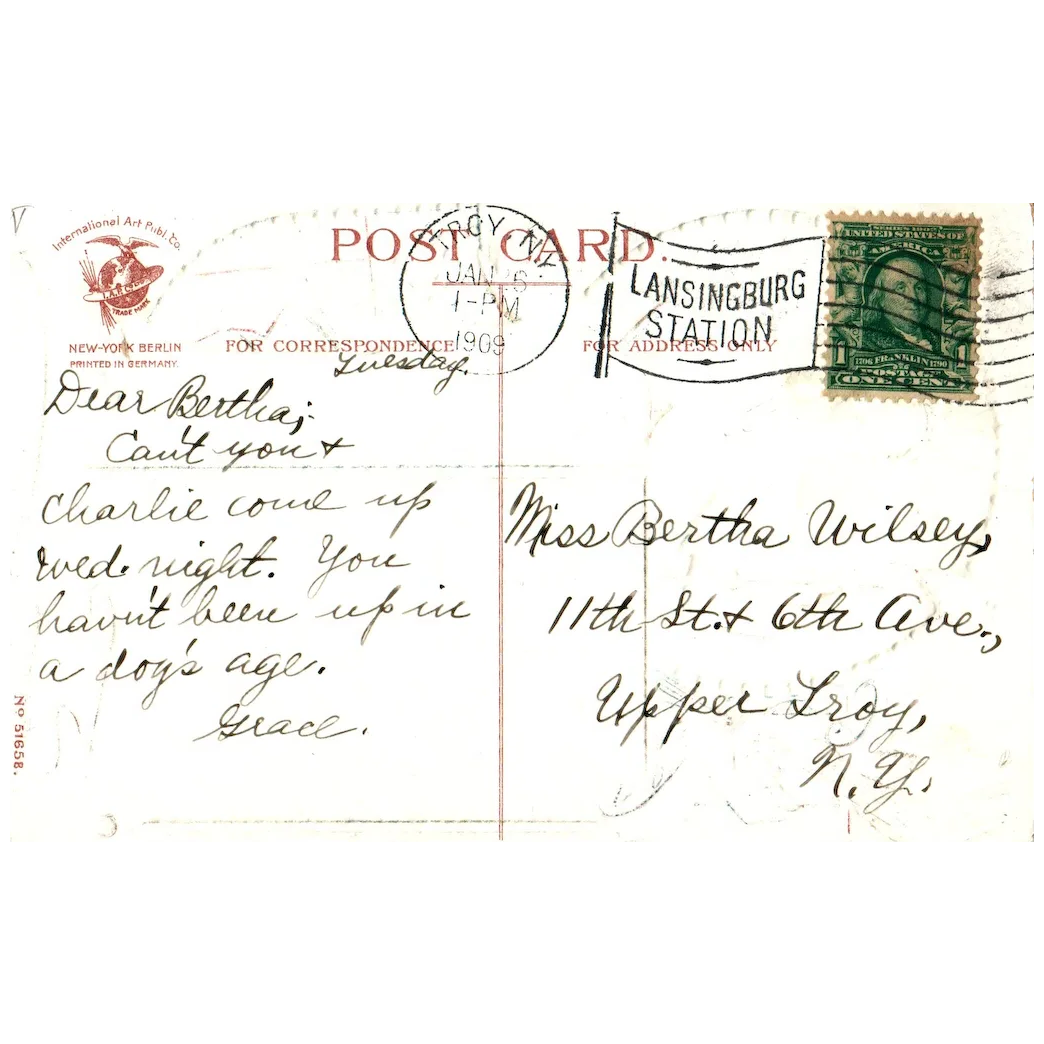 International Art Publ. Co.
TRADE MARK
NEW-YORK BERLIN
PRINTED IN GERMANY.
POST CARD.
TROY, N.Y.
JAN 26
1-PM
1909
LANSINGBURG
STATION
SERIES 1902
UNITED STATES OF
AMERICA
1706 FRANKLIN 1790
1 1
POSTAGE
ONE CENT
FOR CORRESPONDENCE
FOR ADDRESS ONLY
Tuesday.
Dear Bertha;
Can't you &
Charlie come up
Wed. night. You
havn't been up in
a dog's age.
Grace.
Miss Bertha Wilsey,
11th St. & 6th Ave.,
Upper Troy,
N.Y.
No 51658.